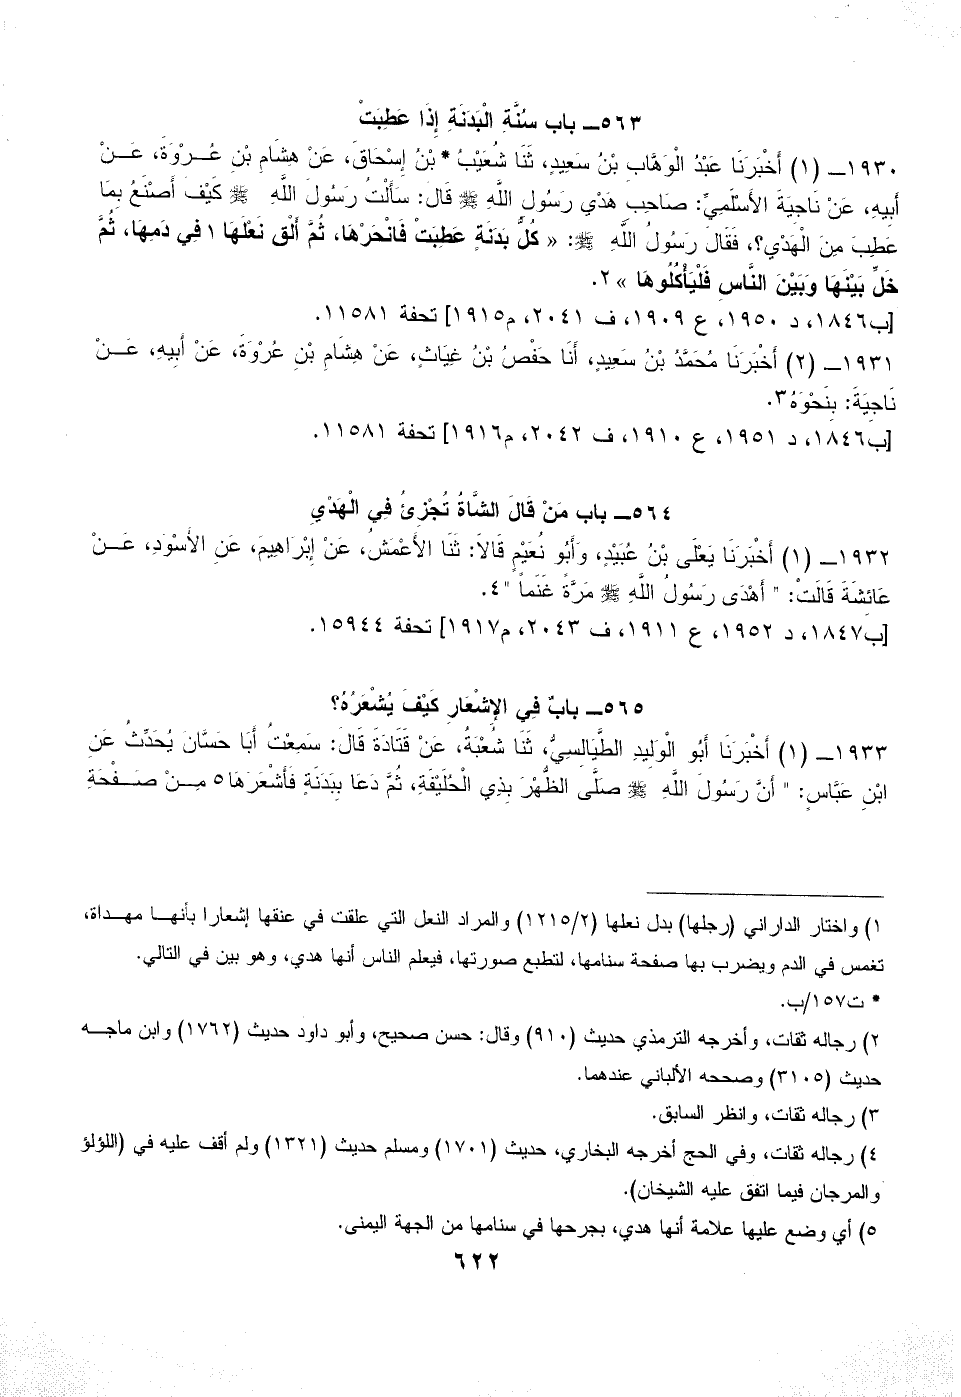 ٥٦٣ــ باب سُنَّةِ الْبَدَنَةِ إِذَا عَطِبَتْ
١٩٣٠ــ (١) أَخْبَرَنَا عَبْدُ الْوَهَّابِ بْنُ سَعِيدٍ، ثَنَا شُعَيْبُ * بْنُ إِسْحَاقَ، عَنْ هِشَامِ بْنِ عُـرْوَةَ، عَـنْ
أَبِيهِ، عَنْ نَاجِيَةَ الأَسْلَمِيِّ: صَاحِبِ هَدْيِ رَسُولِ اللَّهِ ﷺ قَالَ: سَأَلْتُ رَسُولَ اللَّهِ ﷺ كَيْفَ أَصْنَعُ بِمَا
عَطِبَ مِنَ الْهَدْيِ؟، فَقَالَ رَسُولُ اللَّهِ ﷺ: « كُلُّ بَدَنَةٍ عَطِبَتْ فَانْحَرْهَا، ثُمَّ أَلْقِ نَعْلَهَا ١ فِي دَمِهَا، ثُمَّ
خَلِّ بَيْنَهَا وَبَيْنَ النَّاسِ فَلْيَأْكُلُوهَا »٢.
[ب١٨٤٦، د ١٩٥٠، ع ١٩٠٩، ف ٢٠٤١، م١٩١٥] تحفة ١١٥٨١.
١٩٣١ــ (٢) أَخْبَرَنَا مُحَمَّدُ بْنُ سَعِيدٍ، أَنَا حَفْصُ بْنُ غِيَاثٍ، عَنْ هِشَامِ بْنِ عُرْوَةَ، عَنْ أَبِيهِ، عَـنْ
نَاجِيَةَ: بِنَحْوَهُ٣.
[ب١٨٤٦، د ١٩٥١، ع ١٩١٠، ف ٢٠٤٢، م١٩١٦] تحفة ١١٥٨١.
٥٦٤ــ باب مَنْ قَالَ الشَّاةُ تُجْزِئُ فِي الْهَدْيِ
١٩٣٢ــ (١) أَخْبَرَنَا يَعْلَى بْنُ عُبَيْدٍ، وَأَبُو نُعَيْمٍ قَالاَ: ثَنَا الأَعْمَشُ، عَنْ إِبْرَاهِيمَ، عَنِ الأَسْوَدِ، عَـنْ
عَائِشَةَ قَالَتْ: " أَهْدَى رَسُولُ اللَّهِ ﷺ مَرَّةً غَنَماً "٤.
[ب١٨٤٧، د ١٩٥٢، ع ١٩١١، ف ٢٠٤٣، م١٩١٧] تحفة ١٥٩٤٤.
٥٦٥ــ بابٌ فِي الإِشْعَارِ كَيْفَ يُشْعَرُهُ؟
١٩٣٣ــ (١) أَخْبَرَنَا أَبُو الْوَلِيدِ الطَّيَالِسِيُّ، ثَنَا شُعْبَةُ، عَنْ قَتَادَةَ قَالَ: سَمِعْتُ أَبَا حَسَّانَ يُحَدِّثُ عَنِ
ابْنِ عَبَّاسٍ: " أَنَّ رَسُولَ اللَّهِ ﷺ صَلَّى الظُّهْرَ بِذِي الْحُلَيْفَةِ، ثُمَّ دَعَا بِبَدَنَةٍ فَأَشْعَرَهَا٥ مِـنْ صَـفْحَةِ
١) واختار الداراني (رجلها) بدل نعلها (١٢١٥/٢) والمراد النعل التي علقت في عنقها إشعارا بأنهـا مهـداة،
تغمس في الدم ويضرب بها صفحة سنامها، لتطبع صورتها، فيعلم الناس أنها هدي، وهو بين في التالي.
* ت١٥٧/ب.
٢) رجاله ثقات، وأخرجه الترمذي حديث (٩١٠) وقال: حسن صحيح، وأبو داود حديث (١٧٦٢) وابن ماجـه
حديث (٣١٠٥) وصححه الألباني عندهما.
٣) رجاله ثقات، وانظر السابق.
٤) رجاله ثقات، وفي الحج أخرجه البخاري، حديث (١٧٠١) ومسلم حديث (١٣٢١) ولم أقف عليه في (اللؤلؤ
والمرجان فيما اتفق عليه الشيخان).
٥) أي وضع عليها علامة أنها هدي، بجرحها في سنامها من الجهة اليمنى.
٦٢٢